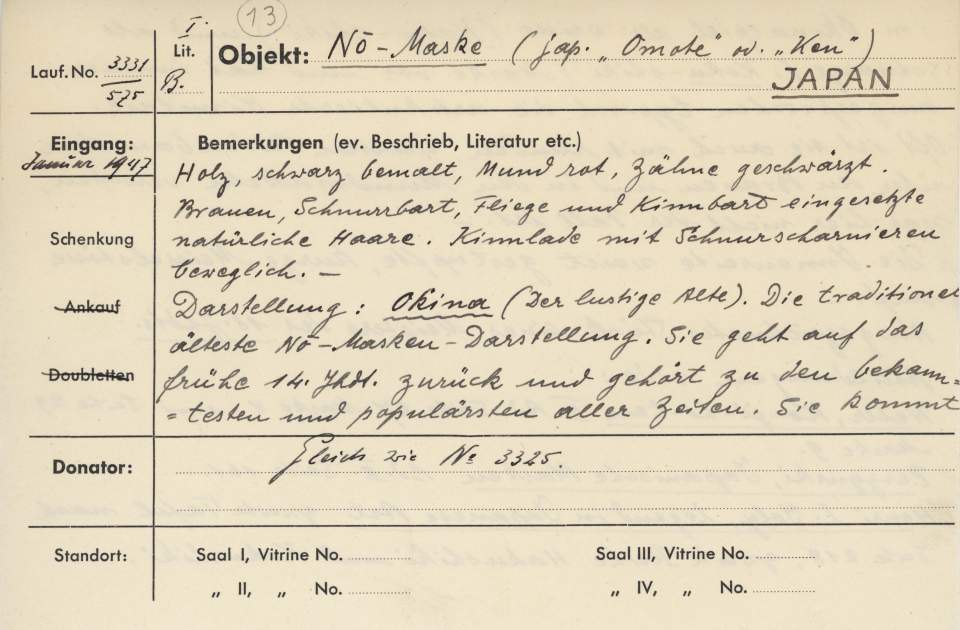 13
I.
Lauf. No. 3331
575
Lit.
B.
Objekt: Nō-Maske (jap. „Omote" od. „Ken")
JAPAN
Eingang:
Januar 1947
Schenkung
Ankauf
Doubletten
Bemerkungen (ev. Beschrieb, Literatur etc.)
Holz, schwarz bemalt, Mund rot, Zähne geschwärzt.
Brauen, Schnurrbart, Fliege und Kinnbart eingesetzte
natürliche Haare. Kinnlade mit Schnurscharnieren
beweglich. —
Darstellung: Okina (Der lustige Alte). Die traditionel
älteste Nō-Masken-Darstellung. Sie geht auf das
frühe 14. Jhdt. zurück und gehört zu den bekann=
=testen und populärsten aller Zeiten. Sie kommt
Donator:
Gleich wie No 3325.
Standort:
Saal I, Vitrine No.
Saal III, Vitrine No.
„ II, „ No.
„ IV, „ No.